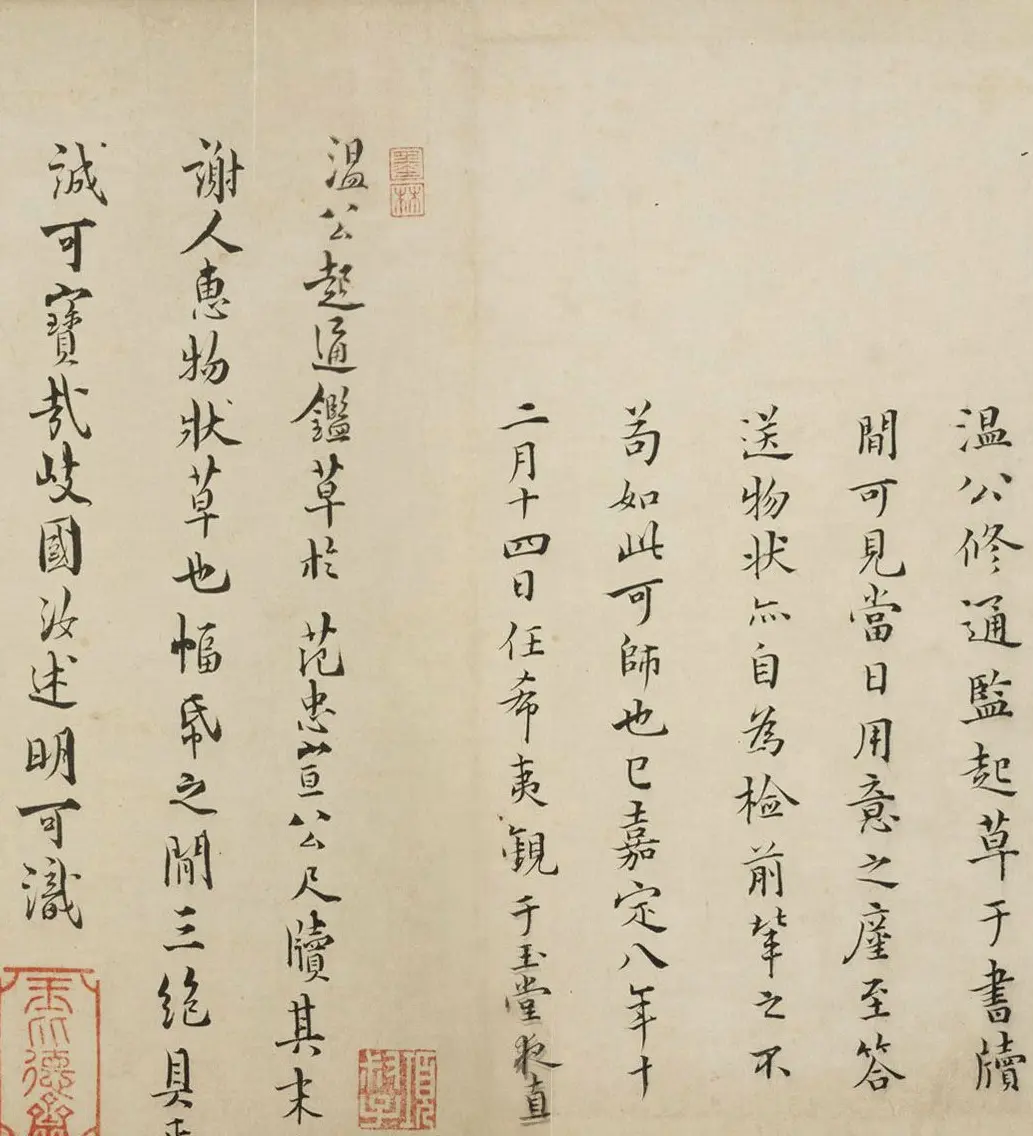 温公修通監起草于書牘
間可見當日用意之處至答
送物状亦自為檢前輩之不
苟如此可師也已嘉定八年十
二月十四日任希夷觀于玉堂夜直
墨林
温公起通鑑草於范忠宣公尺牘其末
謝人惠物狀草也幅紙之間三絕具
誠可寶哉岐國汝述明可識